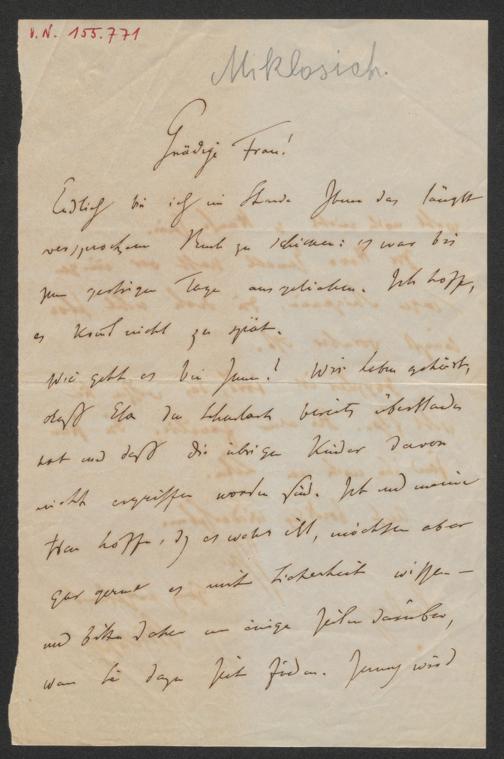 V. N. 155.771
Miklosich.
Gnädige Frau!
Endlich bin ich im Stande Ihnen das längst
versprochene Buch zu schicken: es war bis
zum gestrigen Tage ausgeliehen. Ich hoffe,
es kömt nicht zu spät.
Wie geht es bei Ihnen? Wir haben gehört,
daß Ela den Scharlach bereits überstanden
hat und daß die übrigen Kinder davon
nicht ergriffen worden sind. Ich und meine
Frau hoffen, dß es wahr ist, möchten aber
gar gerne es mit Sicherheit wissen –
und bitten daher um einige Zeilen darüber,
wenn Sie dazu Zeit finden. Jenny wird